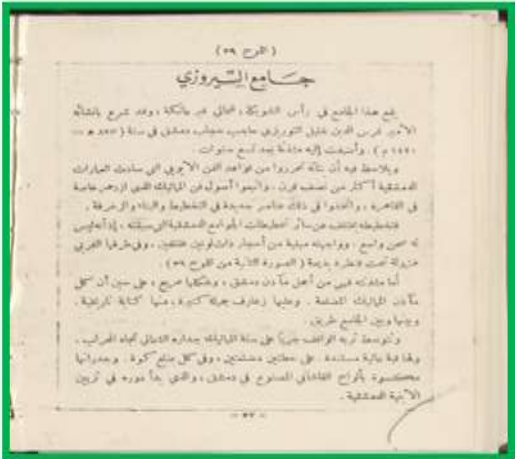 ( اللوح ٣٩ )
جامع التيروزي
يقع هذا الجامع في رأس الشويكة، شمالي قبر عاتكة، وقد شرع بانشائه
الأمير غرس الدين خليل التوريزي حاجب حجاب دمشق في سنة ( ٨٢٣ هـ —
١٤٢٠ م ) . وأضيفت إليه مئذنة بعد تسع سنوات .
ويلاحظ فيه أن بناته تحرروا من قواعد الفن الأيوبي التي سادت العمارات
الدمشقية أكثر من نصف قرن، واتبعوا أصول فن المماليك الذي ازدهر خاصة
في القاهرة، وأتخذوا في ذلك عناصر جديدة في التخطيط والبناء والزخرفة .
فتخطيطه تختلف عن سائر تخطيطات الجوامع الدمشقية التي سبقته، إذ أنه ليس
له صحن واسع . وواجهته مبنية من أحجار ذات لونين مختلفين، وفي طرفها الغربي
مزولة تحت قنطرة بديعة ( الصورة الثانية من اللوح ٣٩ )
أما مئذنته فهي من أجمل مآذن دمشق، وشكلها مربع، على حين أن شكل
مآذن المماليك المضلعة . وعليها زخارف جميلة كثيرة، منها كتابة قرآنية .
وبينها وبين الجامع طريق .
وتتوسط تربة الواقف جزءا على سنة المماليك بجداره الشمالي تجاه المحراب .
ولها قبة عالية مستندة على حطتين مضلعتين، وفي كل ضلع كوة . وجدرانها
مكسوة بألواح القاشاني المصنوع في دمشق، والذي بدأ دوره في تزيين
الأبنية الدمشقية .